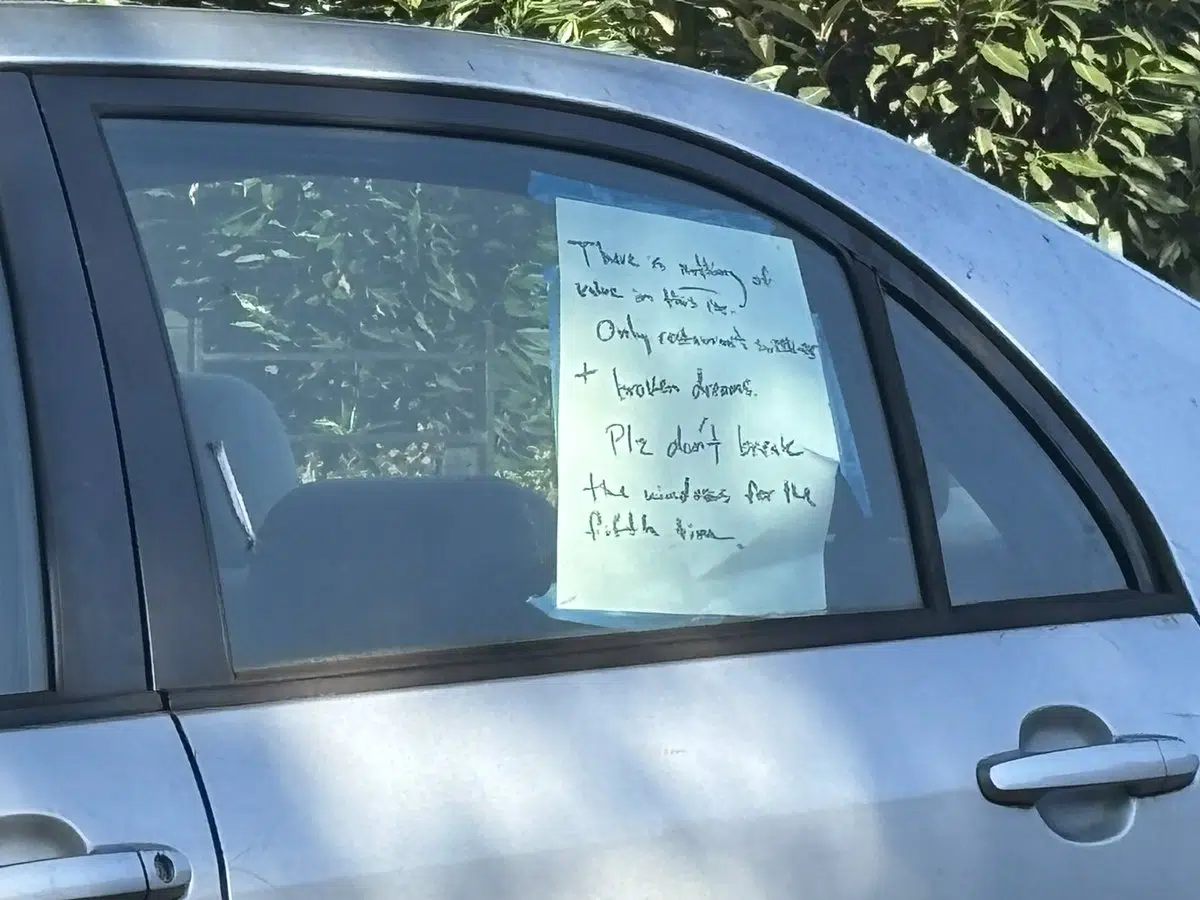 There is nothing of
value in this
Only
+ broken dreams.
Plz don't break
the windows for the
fifth time.